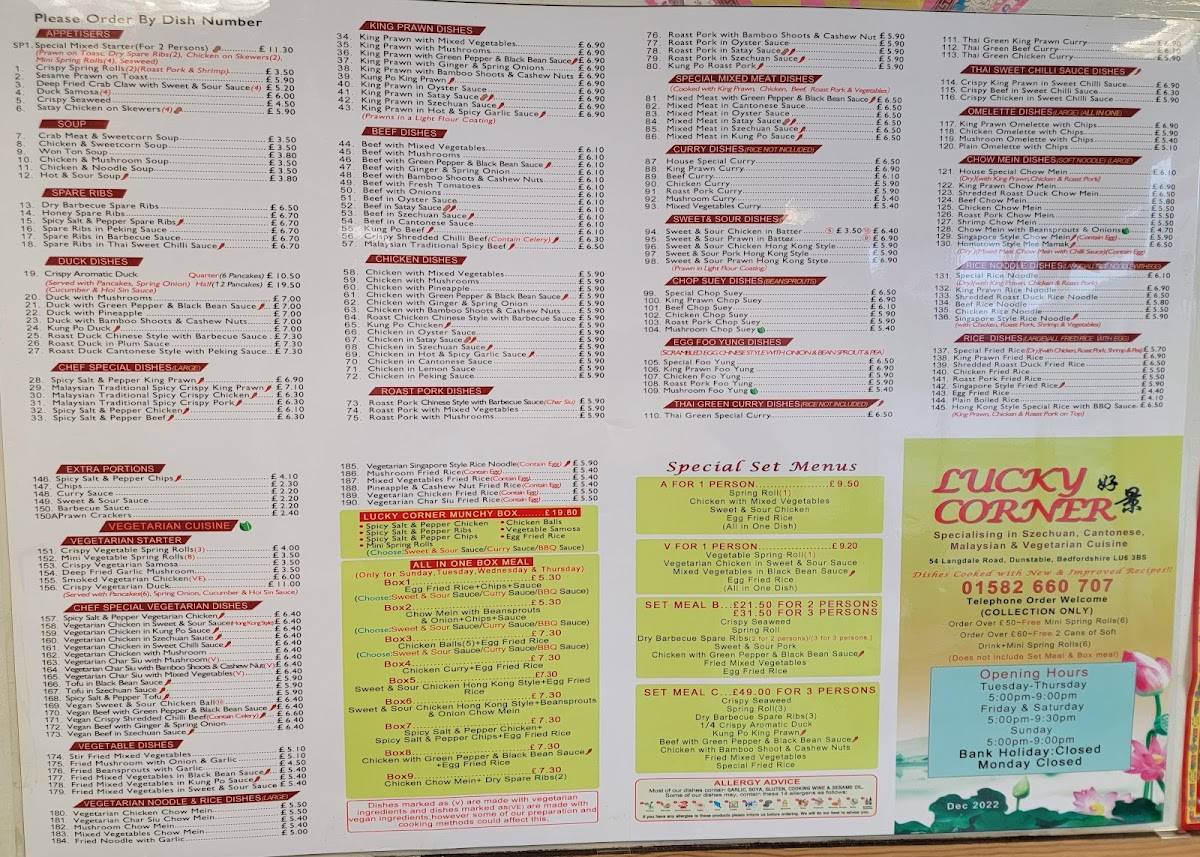 Please Order By Dish Number
APPETISERS
SP1. Special Mixed Starter(For 2 Persons) £ 11.30
(Prawn on Toast, Dry Spare Ribs(2), Chicken on Skewers(2),
Mini Spring Rolls(4), Seaweed)
1. Crispy Spring Rolls(2)(Roast Pork & Shrimp) £ 3.50
2. Sesame Prawn on Toast £ 5.90
3. Deep Fried Crab Claw with Sweet & Sour Sauce(4) £ 5.20
4. Duck Samosa(4) £ 6.00
5. Crispy Seaweed £ 4.50
6. Satay Chicken on Skewers(4) £ 5.90
SOUP
7. Crab Meat & Sweetcorn Soup £ 3.50
8. Chicken & Sweetcorn Soup £ 3.50
9. Won Ton Soup £ 3.80
10. Chicken & Mushroom Soup £ 3.50
11. Chicken & Noodle Soup £ 3.50
12. Hot & Sour Soup £ 3.80
SPARE RIBS
13. Dry Barbecue Spare Ribs £ 6.50
14. Honey Spare Ribs £ 6.70
15. Spicy Salt & Pepper Spare Ribs £ 6.70
16. Spare Ribs in Peking Sauce £ 6.70
17. Spare Ribs in Barbecue Sauce £ 6.70
18. Spare Ribs in Thai Sweet Chilli Sauce £ 6.70
DUCK DISHES
19. Crispy Aromatic Duck Quarter(6 Pancakes) £ 10.50
(Served with Pancakes, Spring Onion) Half(12 Pancakes) £ 19.50
(Cucumber & Hoi Sin Sauce)
20. Duck with Mushrooms £ 7.00
21. Duck with Green Pepper & Black Bean Sauce £ 7.00
22. Duck with Pineapple £ 7.00
23. Duck with Bamboo Shoots & Cashew Nuts £ 7.00
24. Kung Po Duck £ 7.00
25. Roast Duck Chinese Style with Barbecue Sauce £ 7.30
26. Roast Duck in Plum Sauce £ 7.30
27. Roast Duck Cantonese Style with Peking Sauce £ 7.30
CHEF SPECIAL DISHES(LARGE)
28. Spicy Salt & Pepper King Prawn £ 6.90
29. Malaysian Traditional Spicy Crispy King Prawn £ 7.10
30. Malaysian Traditional Spicy Crispy Chicken £ 6.30
31. Malaysian Traditional Spicy Crispy Pork £ 6.30
32. Spicy Salt & Pepper Chicken £ 6.10
33. Spicy Salt & Pepper Beef £ 6.30
KING PRAWN DISHES
34. King Prawn with Mixed Vegetables £ 6.90
35. King Prawn with Mushrooms £ 6.90
36. King Prawn with Green Pepper & Black Bean Sauce £ 6.90
37. King Prawn with Ginger & Spring Onions £ 6.90
38. King Prawn with Bamboo Shoots & Cashew Nuts £ 6.90
39. Kung Po King Prawn £ 6.90
40. King Prawn in Oyster Sauce £ 6.90
41. King Prawn in Satay Sauce £ 6.90
42. King Prawn in Szechuan Sauce £ 6.90
43. King Prawn in Hot & Spicy Garlic Sauce £ 6.90
(Prawns in a Light Flour Coating)
BEEF DISHES
44. Beef with Mixed Vegetables £ 6.10
45. Beef with Mushrooms £ 6.10
46. Beef with Green Pepper & Black Bean Sauce £ 6.10
47. Beef with Ginger & Spring Onion £ 6.10
48. Beef with Bamboo Shoots & Cashew Nuts £ 6.10
49. Beef with Fresh Tomatoes £ 6.10
50. Beef with Onions £ 6.10
51. Beef in Oyster Sauce £ 6.10
52. Beef in Satay Sauce £ 6.10
53. Beef in Szechuan Sauce £ 6.10
54. Beef in Cantonese Sauce £ 6.10
55. Kung Po Beef £ 6.10
56. Crispy Shredded Chilli Beef(Contain Celery) £ 6.30
57. Malaysian Traditional Spicy Beef £ 6.50
CHICKEN DISHES
58. Chicken with Mixed Vegetables £ 5.90
59. Chicken with Mushrooms £ 5.90
60. Chicken with Pineapple £ 5.90
61. Chicken with Green Pepper & Black Bean Sauce £ 5.90
62. Chicken with Ginger & Spring Onion £ 5.90
63. Chicken with Bamboo Shoots & Cashew Nuts £ 5.90
64. Roast Chicken Chinese Style with Barbecue Sauce £ 5.90
65. Kung Po Chicken £ 5.90
66. Chicken in Oyster Sauce £ 5.90
67. Chicken in Satay Sauce £ 5.90
68. Chicken in Szechuan Sauce £ 5.90
69. Chicken in Hot & Spicy Garlic Sauce £ 5.90
70. Chicken in Cantonese Sauce £ 5.90
71. Chicken in Lemon Sauce £ 5.90
72. Chicken in Peking Sauce £ 5.90
ROAST PORK DISHES
73. Roast Pork Chinese Style with Barbecue Sauce(Char Siu) £ 5.90
74. Roast Pork with Mixed Vegetables £ 5.90
75. Roast Pork with Mushrooms £ 5.90
76. Roast Pork with Bamboo Shoots & Cashew Nut £ 5.90
77. Roast Pork in Oyster Sauce £ 5.90
78. Roast Pork in Satay Sauce £ 5.90
79. Roast Pork in Szechuan Sauce £ 5.90
80. Kung Po Roast Pork £ 5.90
SPECIAL MIXED MEAT DISHES
(Cooked with King Prawn, Chicken, Beef, Roast Pork & Vegetables)
81. Mixed Meat with Green Pepper & Black Bean Sauce £ 6.50
82. Mixed Meat in Cantonese Sauce £ 6.50
83. Mixed Meat in Oyster Sauce £ 6.50
84. Mixed Meat in Satay Sauce £ 6.50
85. Mixed Meat in Szechuan Sauce £ 6.50
86. Mixed Meat in Kung Po Sauce £ 6.50
CURRY DISHES(RICE NOT INCLUDED)
87. House Special Curry £ 6.50
88. King Prawn Curry £ 6.90
89. Beef Curry £ 6.10
90. Chicken Curry £ 5.90
91. Roast Pork Curry £ 5.90
92. Mushroom Curry £ 5.40
93. Mixed Vegetables Curry £ 5.40
SWEET& SOUR DISHES
94. Sweet & Sour Chicken in Batter £ 3.50 £ 6.40
95. Sweet & Sour Prawn in Batter £ 6.90
96. Sweet & Sour Chicken Hong Kong Style £ 5.90
97. Sweet & Sour Pork Hong Kong Style £ 5.90
98. Sweet & Sour Prawn Hong Kong Style £ 6.90
(Prawn in Light Flour Coating)
CHOP SUEY DISHES(BEANSPROUTS)
99. Special Chop Suey £ 6.50
100. King Prawn Chop Suey £ 6.90
101. Beef Chop Suey £ 6.10
102. Chicken Chop Suey £ 5.90
103. Roast Pork Chop Suey £ 5.90
104. Mushroom Chop Suey £ 5.40
EGG FOO YUNG DISHES
(SCRAMBLED EGG CHINESE STYLE WITH ONION & BEANSPROUT & PEA)
105. Special Foo Yung £ 6.50
106. King Prawn Foo Yung £ 6.90
107. Chicken Foo Yung £ 5.90
108. Roast Pork Foo Yung £ 5.90
109. Mushroom Foo Yung £ 5.40
THAI GREEN CURRY DISHES(RICE NOT INCLUDED)
110. Thai Green Special Curry £ 6.50
111. Thai Green King Prawn Curry £ 6.90
112. Thai Green Beef Curry £ 6.10
113. Thai Green Chicken Curry £ 5.90
THAI SWEET CHILLI SAUCE DISHES
114. Crispy King Prawn in Sweet Chilli Sauce £ 6.90
115. Crispy Beef in Sweet Chilli Sauce £ 6.30
116. Crispy Chicken in Sweet Chilli Sauce £ 6.50
OMELETTE DISHES(LARGE) (ALL IN ONE)
117. King Prawn Omelette with Chips £ 6.90
118. Chicken Omelette with Chips £ 5.90
119. Mushroom Omelette with Chips £ 5.40
120. Plain Omelette with Chips £ 5.10
CHOW MEIN DISHES(SOFT NOODLE) (LARGE)
121. House Special Chow Mein £ 6.10
(Dry)(with King Prawn,Chicken & Roast Pork)
122. King Prawn Chow Mein £ 6.90
123. Shredded Roast Duck Chow Mein £ 6.50
124. Beef Chow Mein £ 5.80
125. Chicken Chow Mein £ 5.50
126. Roast Pork Chow Mein £ 5.50
127. Shrimp Chow Mein £ 5.50
128. Chow Mein with Beansprouts & Onions £ 4.70
129. Singapore Style Chow Mein(Contain Egg) £ 5.90
130. Hometown Style Mee Mamak £ 6.50
(Dry)(Mixed Meat Chow Mein with Chilli Sauce)(Contain Egg)
131. Special Rice Noodle £ 6.10
(Dry)(with King Prawn, Chicken & Roast Pork)
132. King Prawn Rice Noodle £ 6.90
133. Shredded Roast Duck Rice Noodle £ 6.50
134. Beef Rice Noodle £ 5.80
135. Chicken Rice Noodle £ 5.50
136. Singapore Style Rice Noodle £ 5.90
(with Chicken, Roast Pork, Shrimp & Vegetables)
RICE DISHES(LARGE)(ALL FRIED RICE WITH EGG)
137. Special Fried Rice(Dry)(with Chicken, Roast Pork, Shrimp & Pea) £ 5.70
138. King Prawn Fried Rice £ 6.90
139. Shredded Roast Duck Fried Rice £ 6.50
140. Chicken Fried Rice £ 5.50
141. Roast Pork Fried Rice £ 5.50
142. Singapore Style Fried Rice £ 5.90
143. Egg Fried Rice £ 4.40
144. Plain Boiled Rice £ 4.10
145. Hong Kong Style Special Rice with BBQ Sauce £ 6.50
(King Prawn, Chicken & Roast Pork on Top)
EXTRA PORTIONS
146. Spicy Salt & Pepper Chips £ 4.10
147. Chips £ 2.30
148. Curry Sauce £ 2.20
149. Sweet & Sour Sauce £ 2.20
150. Barbecue Sauce £ 2.20
150A Prawn Crackers £ 2.40
VEGETARIAN CUISINE
VEGETARIAN STARTER
151. Crispy Vegetable Spring Rolls(3) £ 4.00
152. Mini Vegetable Spring Rolls(8) £ 3.50
153. Crispy Vegetarian Samosa £ 3.50
154. Deep Fried Garlic Mushroom £ 3.50
155. Smoked Vegetarian Chicken(VE) £ 6.00
156. Crispy Vegetarian Duck £ 11.00
(Served with Pancakes(6), Spring Onion, Cucumber & Hoi Sin Sauce)
CHEF SPECIAL VEGETARIAN DISHES
157. Spicy Salt & Pepper Vegetarian Chicken £ 6.40
158. Vegetarian Chicken in Sweet & Sour Sauce(Hong Kong Style) £ 6.40
159. Vegetarian Chicken in Kung Po Sauce £ 6.40
160. Vegetarian Chicken in Szechuan Sauce £ 6.40
161. Vegetarian Chicken in Sweet Chilli Sauce £ 6.40
162. Vegetarian Chicken with Mushroom £ 6.40
163. Vegetarian Char Siu with Mushroom(V) £ 6.40
164. Vegetarian Char Siu with Bamboo Shoots & Cashew Nut(V) £ 6.40
165. Vegetarian Char Siu with Mixed Vegetables(V) £ 6.40
166. Tofu in Black Bean Sauce £ 5.90
167. Tofu in Szechuan Sauce £ 5.90
168. Spicy Salt & Pepper Tofu £ 5.90
169. Vegan Sweet & Sour Chicken Ball £ 6.40
170. Vegan Beef with Green Pepper & Black Bean Sauce £ 6.40
171. Vegan Crispy Shredded Chilli Beef(Contain Celery) £ 6.40
172. Vegan Beef with Ginger & Spring Onion £ 6.40
173. Vegan Beef in Szechuan Sauce £ 6.40
VEGETABLE DISHES
174. Stir Fried Mixed Vegetables £ 5.10
175. Fried Mushroom with Onion & Garlic £ 5.10
176. Fried Beansprouts with Garlic £ 4.50
177. Fried Mixed Vegetables in Black Bean Sauce £ 5.40
178. Fried Mixed Vegetables in Kung Po Sauce £ 5.40
179. Fried Mixed Vegetables in Sweet & Sour Sauce £ 5.40
VEGETARIAN NOODLE & RICE DISHES (LARGE)
180. Vegetarian Chicken Chow Mein £ 5.50
181. Vegetarian Char Siu Chow Mein £ 5.50
182. Mushroom Chow Mein £ 5.40
183. Mixed Vegetables Chow Mein £ 5.40
184. Fried Noodle with Garlic £ 5.00
185. Vegetarian Singapore Style Rice Noodle(Contain Egg) £ 5.90
186. Mushroom Fried Rice(Contain Egg) £ 5.40
187. Mixed Vegetables Fried Rice(Contain Egg) £ 5.40
188. Pineapple & Cashew Nut Fried Rice(Contain Egg) £ 5.40
189. Vegetarian Chicken Fried Rice(Contain Egg) £ 5.50
190. Vegetarian Char Siu Fried Rice(Contain Egg) £ 5.50
LUCKY CORNER MUNCHY BOX........£19.80
• Spicy Salt & Pepper Chicken • Chicken Balls
• Spicy Salt & Pepper Ribs • Vegetable Samosa
• Spicy Salt & Pepper Chips • Egg Fried Rice
• Mini Spring Rolls
(Choose:Sweet & Sour Sauce/Curry Sauce/BBQ Sauce)
ALL IN ONE BOX MEAL
(Only for Sunday,Tuesday,Wednesday & Thursday)
Box1 £ 5.30
Egg Fried Rice+Chips+Sauce
(Choose:Sweet & Sour Sauce/Curry Sauce/BBQ Sauce)
Box2 £5.30
Chow Mein with Beansprouts
& Onion+Chips+Sauce
(Choose:Sweet & Sour Sauce/Curry Sauce/BBQ Sauce)
Box3 £ 7.30
Chicken Balls(5)+Egg Fried Rice
(Choose:Sweet & Sour Sauce/Curry Sauce/BBQ Sauce)
Box4 £7.30
Chicken Curry+Egg Fried Rice
Box5 £7.30
Sweet & Sour Chicken Hong Kong Style+Egg Fried
Rice
Box6 £7.30
Sweet & Sour Chicken Hong Kong Style+Beansprouts
& Onion Chow Mein
Box7 £7.30
Spicy Salt & Pepper Chicken
Spicy Salt & Pepper Chips+Egg Fried Rice
Box8 £7.30
Chicken with Green Pepper & Black Bean Sauce
+Egg Fried Rice
Box9 £ 7.30
Chicken Chow Mein+ Dry Spare Ribs(2)
Dishes marked as (v) are made with vegetarian
ingredients and dishes marked as(VE) are made with
vegan ingredients,however some of our preparation and
cooking methods could affect this.
Special Set Menus
A FOR 1 PERSON £9.50
Spring Roll(1)
Chicken with Mixed Vegetables
Sweet & Sour Chicken
Egg Fried Rice
(All in One Dish)
V FOR 1 PERSON £ 9.20
Vegetable Spring Roll(1)
Vegetarian Chicken in Sweet & Sour Sauce
Mixed Vegetables in Black Bean Sauce
Egg Fried Rice
(All in One Dish)
SET MEAL B...£21.50 FOR 2 PERSONS
£31.50 FOR 3 PERSONS
Crispy Seaweed
Spring Roll
Dry Barbecue Spare Ribs(2 for 2 persons)/(3 for 3 persons )
Sweet & Sour Pork
Chicken with Green Pepper & Black Bean Sauce
Fried Mixed Vegetables
Egg Fried Rice
SET MEAL C...£49.00 FOR 3 PERSONS
Crispy Seaweed
Spring Roll(3)
Dry Barbecue Spare Ribs(3)
1/4 Crispy Aromatic Duck
Kung Po King Prawn
Beef with Green Pepper & Black Bean Sauce
Chicken with Bamboo Shoot & Cashew Nuts
Fried Mixed Vegetables
Special Fried Rice
ALLERGY ADVICE
Most of our dishes contain GARLIC, SOYA, GLUTEN, COOKING WINE & SESAME OIL.
Some of our dishes may, contain these 14 allergens as follows:
If you have any allergies to these products please inform us before ordering. We will do our best to advise you.
LUCKY 好
CORNER 景
Specialising in Szechuan, Cantonese,
Malaysian & Vegetarian Cuisine
54 Langdale Road, Dunstable, Bedfordshire LU6 3BS
Dishes Cooked with New & Improved Recipes!!
01582 660 707
Telephone Order Welcome
(COLLECTION ONLY)
Order Over £50~Free Mini Spring Rolls(6)
Order Over £60~Free 2 Cans of Soft
Drink+Mini Spring Rolls(6)
(Does not Include Set Meal & Box meal)
Opening Hours
Tuesday-Thursday
5:00pm-9:00pm
Friday & Saturday
5:00pm-9:30pm
Sunday
5:00pm-9:00pm
Bank Holiday:Closed
Monday Closed
Dec 2022